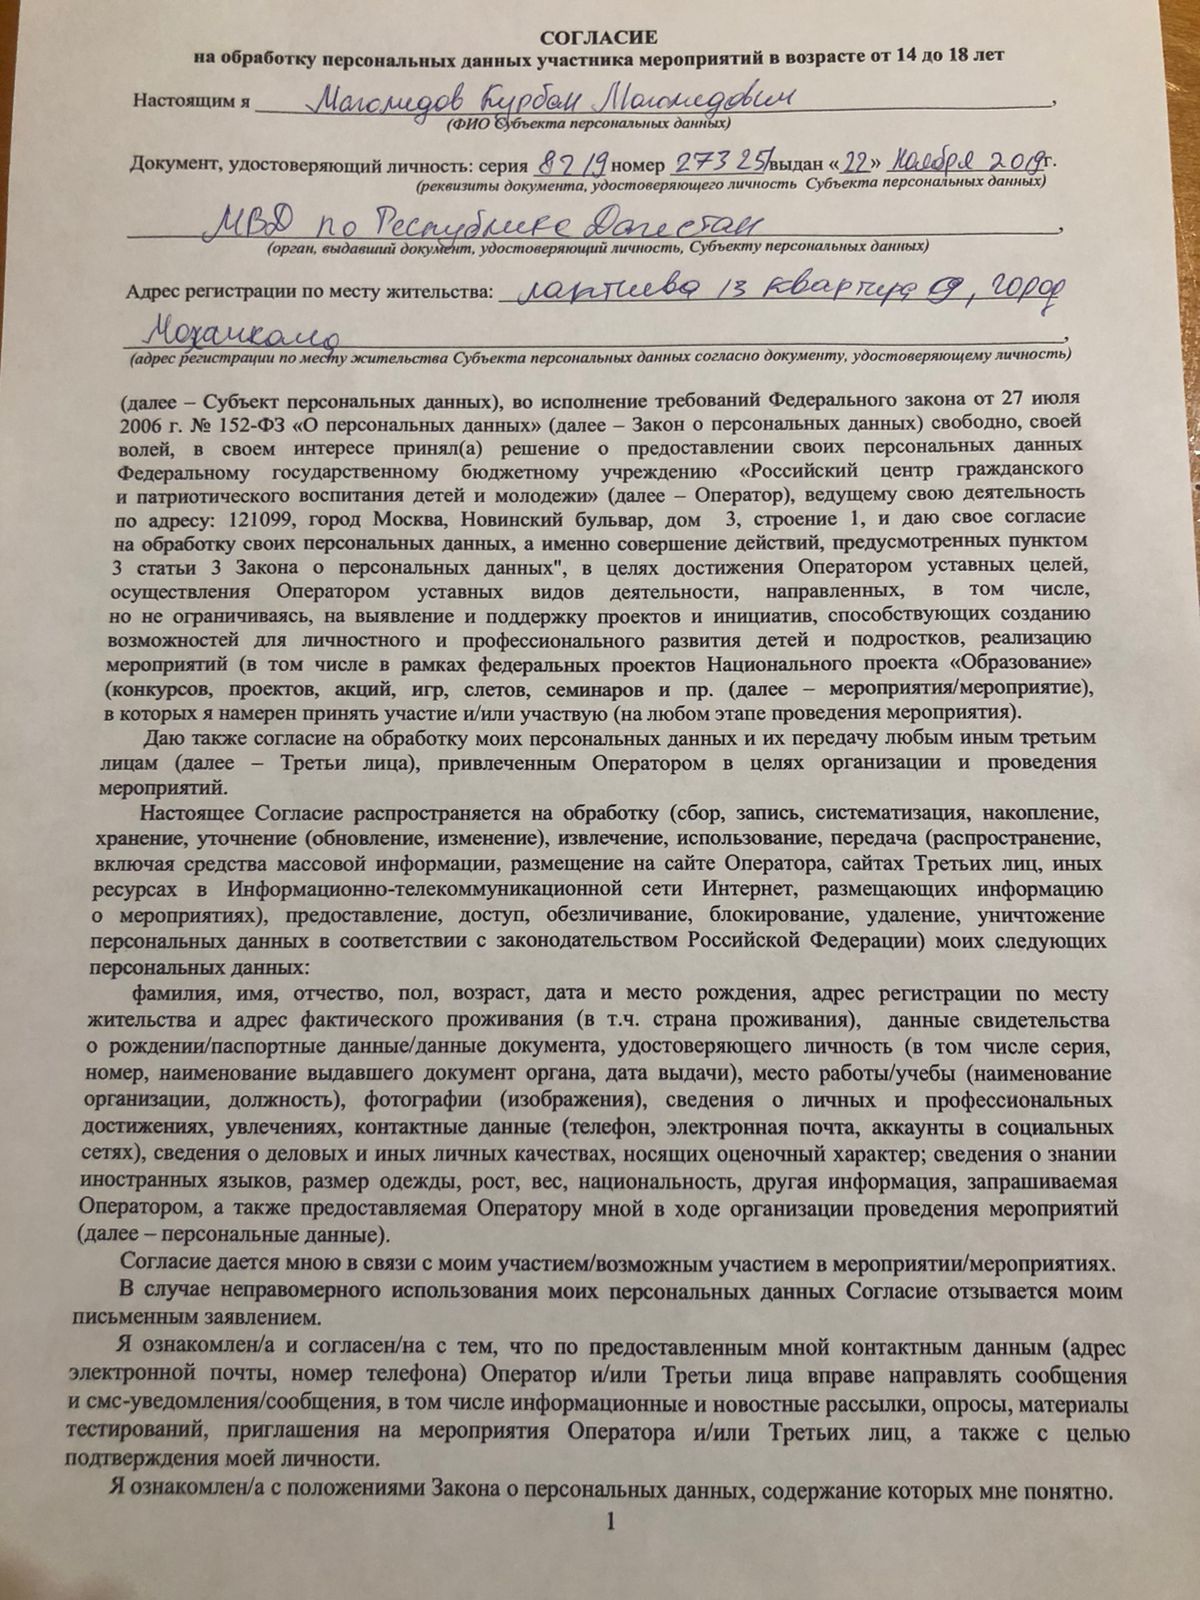 СОГЛАСИЕ
на обработку персональных данных участника мероприятий в возрасте от 14 до 18 лет
Настоящим я Магомедов Курбан Магомедович,
(ФИО Субъекта персональных данных)
Документ, удостоверяющий личность: серия 8219 номер 273251 выдан «22» Ноября 2019г.
(реквизиты документа, удостоверяющего личность Субъекта персональных данных)
МВД по Республике Дагестан,
(орган, выдавший документ, удостоверяющий личность, Субъекту персональных данных)
Адрес регистрации по месту жительства: 13 квартира 69, город
Махачкала,
(адрес регистрации по месту жительства Субъекта персональных данных согласно документу, удостоверяющему личность)
(далее – Субъект персональных данных), во исполнение требований Федерального закона от 27 июля
2006 г. № 152-ФЗ «О персональных данных» (далее – Закон о персональных данных) свободно, своей
волей, в своем интересе принял(а) решение о предоставлении своих персональных данных
Федеральному государственному бюджетному учреждению «Российский центр гражданского
и патриотического воспитания детей и молодежи» (далее – Оператор), ведущему свою деятельность
по адресу: 121099, город Москва, Новинский бульвар, дом 3, строение 1, и даю свое согласие
на обработку своих персональных данных, а именно совершение действий, предусмотренных пунктом
3 статьи 3 Закона о персональных данных", в целях достижения Оператором уставных целей,
осуществления Оператором уставных видов деятельности, направленных, в том числе,
но не ограничиваясь, на выявление и поддержку проектов и инициатив, способствующих созданию
возможностей для личностного и профессионального развития детей и подростков, реализацию
мероприятий (в том числе в рамках федеральных проектов Национального проекта «Образование»
(конкурсов, проектов, акций, игр, слетов, семинаров и пр. (далее – мероприятия/мероприятие),
в которых я намерен принять участие и/или участвую (на любом этапе проведения мероприятия).
Даю также согласие на обработку моих персональных данных и их передачу любым иным третьим
лицам (далее – Третьи лица), привлеченным Оператором в целях организации и проведения
мероприятий.
Настоящее Согласие распространяется на обработку (сбор, запись, систематизация, накопление,
хранение, уточнение (обновление, изменение), извлечение, использование, передача (распространение,
включая средства массовой информации, размещение на сайте Оператора, сайтах Третьих лиц, иных
ресурсах в Информационно-телекоммуникационной сети Интернет, размещающих информацию
о мероприятиях), предоставление, доступ, обезличивание, блокирование, удаление, уничтожение
персональных данных в соответствии с законодательством Российской Федерации) моих следующих
персональных данных:
фамилия, имя, отчество, пол, возраст, дата и место рождения, адрес регистрации по месту
жительства и адрес фактического проживания (в т.ч. страна проживания), данные свидетельства
о рождении/паспортные данные/данные документа, удостоверяющего личность (в том числе серия,
номер, наименование выдавшего документ органа, дата выдачи), место работы/учебы (наименование
организации, должность), фотографии (изображения), сведения о личных и профессиональных
достижениях, увлечениях, контактные данные (телефон, электронная почта, аккаунты в социальных
сетях), сведения о деловых и иных личных качествах, носящих оценочный характер; сведения о знании
иностранных языков, размер одежды, рост, вес, национальность, другая информация, запрашиваемая
Оператором, а также предоставляемая Оператору мной в ходе организации проведения мероприятий
(далее – персональные данные).
Согласие дается мною в связи с моим участием/возможным участием в мероприятии/мероприятиях.
В случае неправомерного использования моих персональных данных Согласие отзывается моим
письменным заявлением.
Я ознакомлен/а и согласен/на с тем, что по предоставленным мной контактным данным (адрес
электронной почты, номер телефона) Оператор и/или Третьи лица вправе направлять сообщения
и смс-уведомления/сообщения, в том числе информационные и новостные рассылки, опросы, материалы
тестирований, приглашения на мероприятия Оператора и/или Третьих лиц, а также с целью
подтверждения моей личности.
Я ознакомлен/а с положениями Закона о персональных данных, содержание которых мне понятно.
1